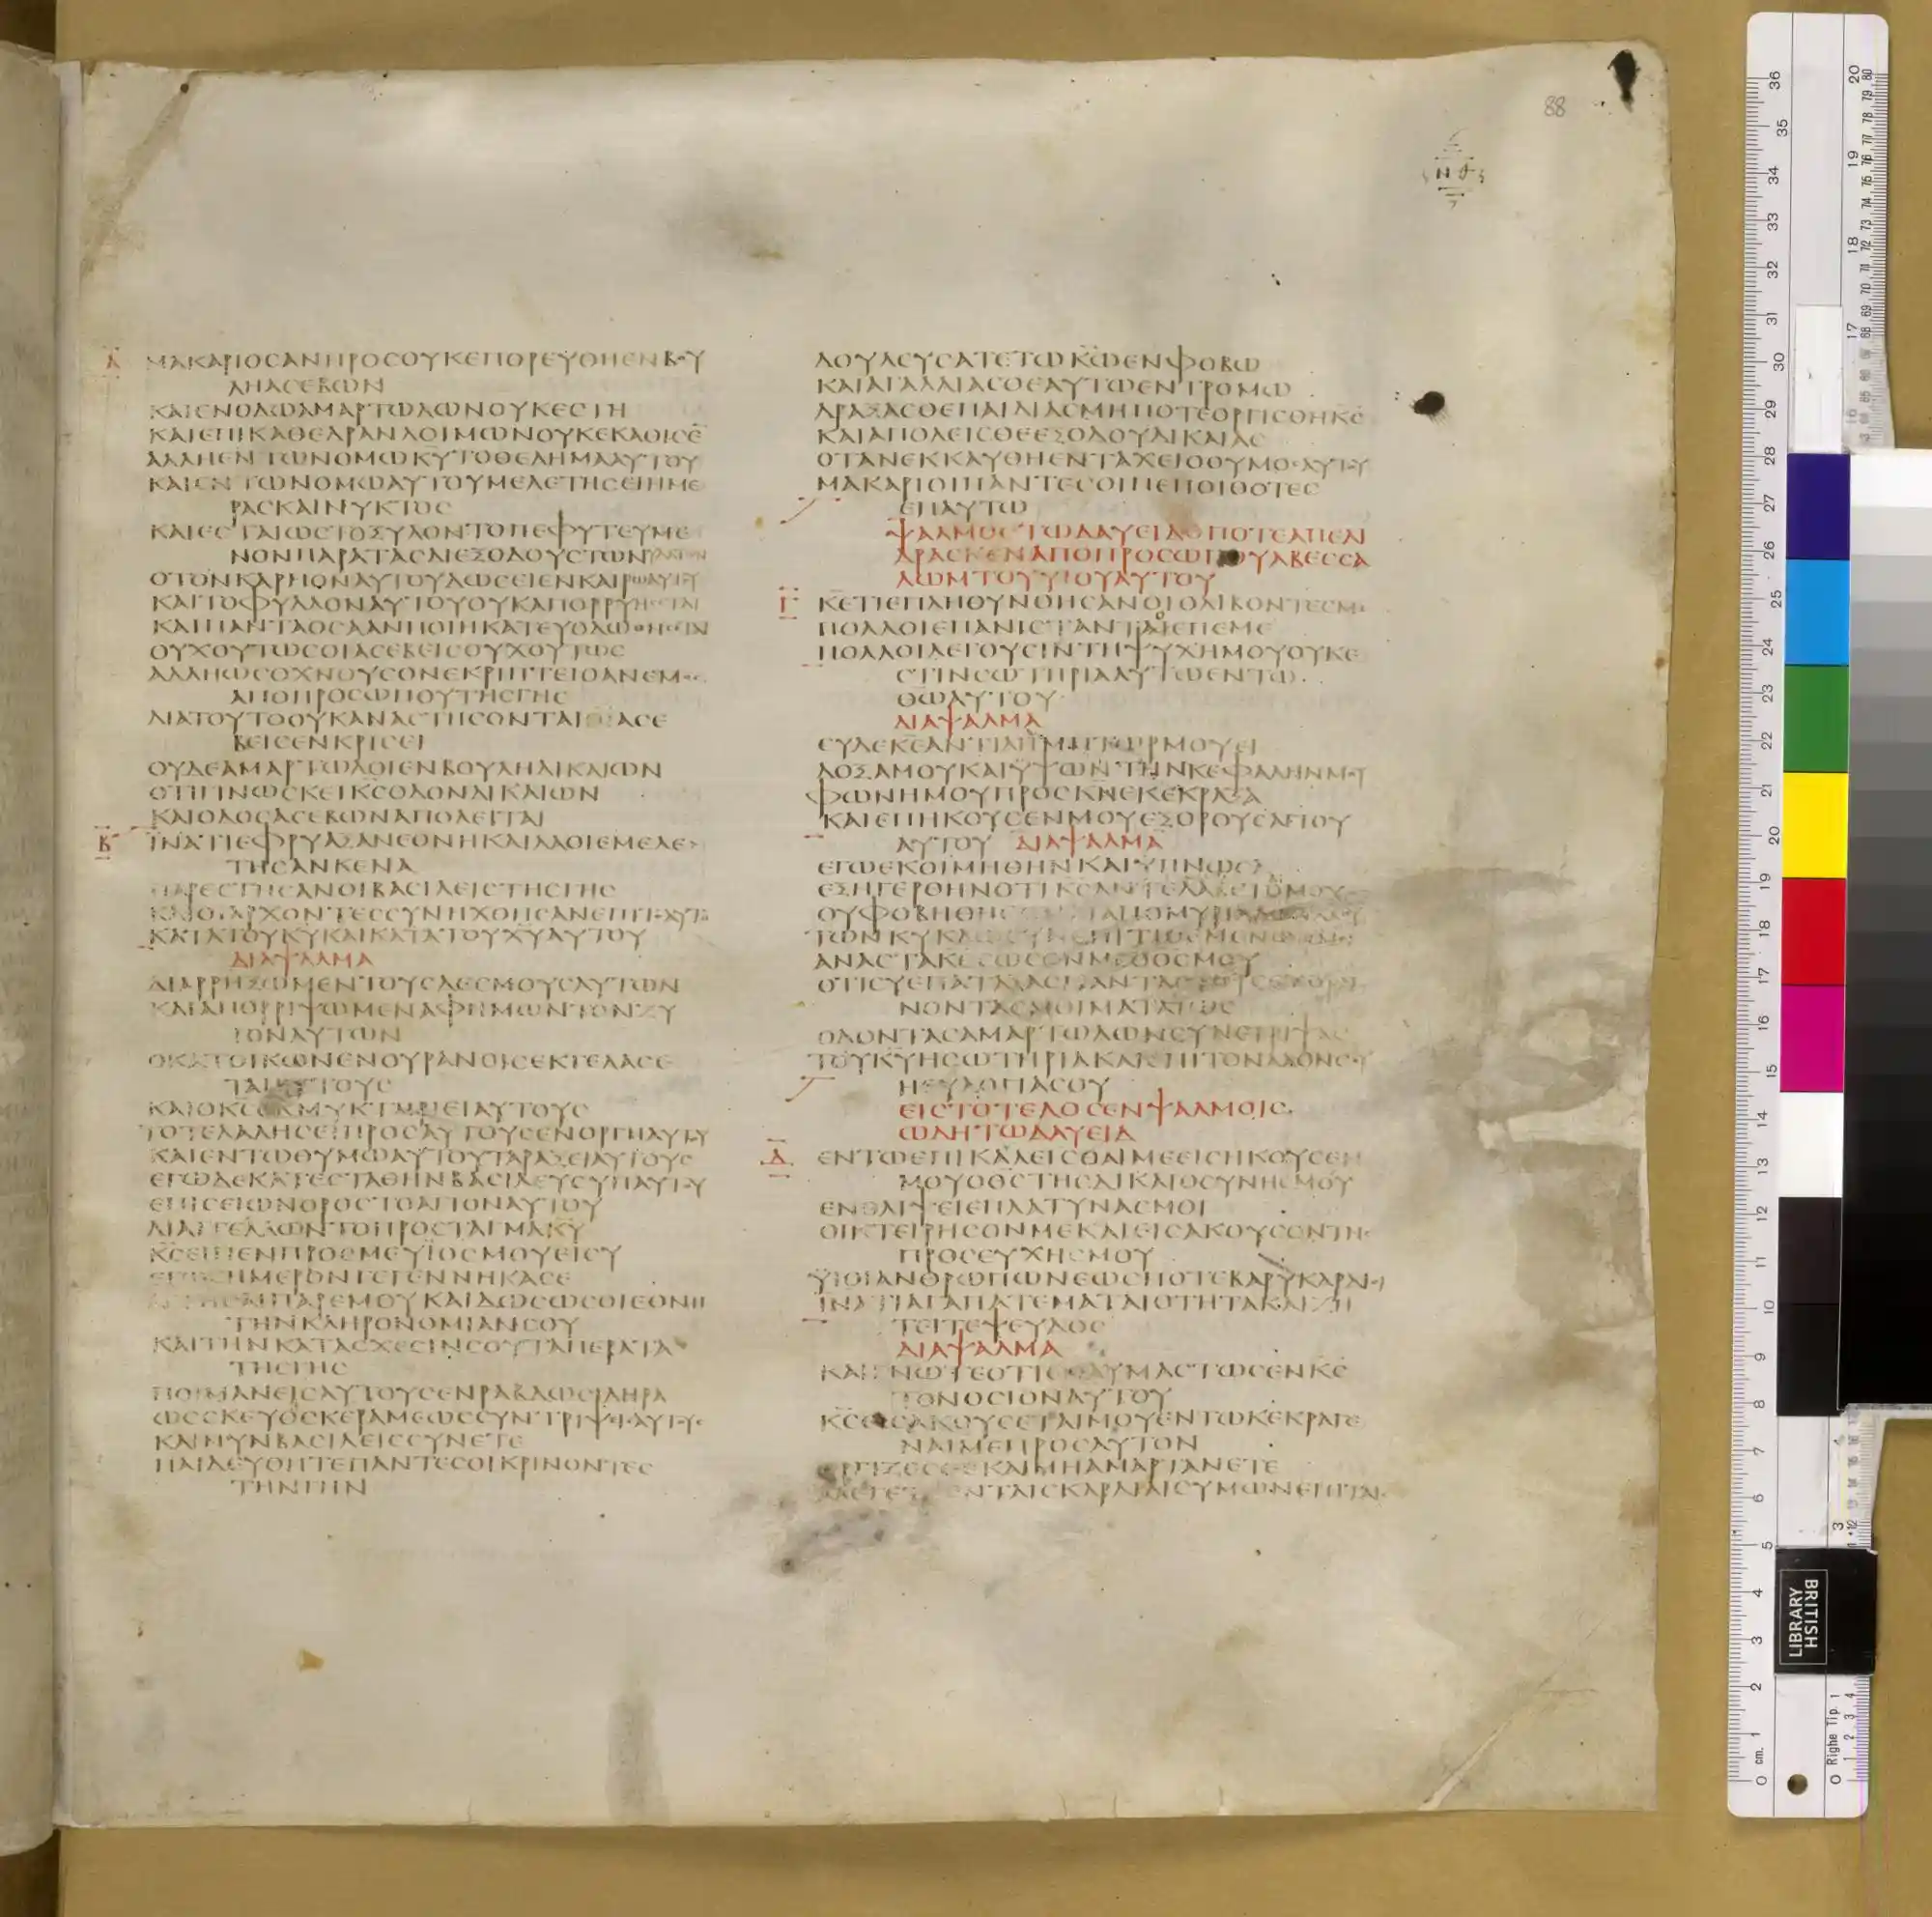 88
ΝΘ
Α
ΜΑΚΑΡΙΟСΑΝΗΡΟСΟΥΚΕΠΟΡΕΥΘΗΕΝΒΟΥ
ΛΗΑСΕΒΩΝ
ΚΑΙΕΝΟΔΩΑΜΑΡΤΩΛΩΝΟΥΚΕСΤΗ
ΚΑΙΕΠΙΚΑΘΕΔΡΑΝΛΟΙΜΩΝΟΥΚΕΚΑΘΙСΕ̅
ΑΛΛΗΕΝΤΩΝΟΜΩΚΥΤΟΘΕΛΗΜΑΑΥΤΟΥ
ΚΑΙΕΝΤΩΝΟΜΩΑΥΤΟΥΜΕΛΕΤΗСΕΙΗΜΕ
ΡΑСΚΑΙΝΥΚΤΟС
ΚΑΙΕСΤΑΙΩСΤΟΞΥΛΟΝΤΟΠΕΦΥΤΕΥΜΕ
ΝΟΝΠΑΡΑΤΑСΔΙΕΞΟΔΟΥСΤΩΝ
ΟΤΟΝΚΑΡΠΟΝΑΥΤΟΥΔΩСΕΙΕΝΚΑΙΡΩΑΥΤΟΥ
ΚΑΙΤΟΦΥΛΛΟΝΑΥΤΟΥΟΥΚΑΠΟΡΡΥΗСΕΤΑΙ
ΚΑΙΠΑΝΤΑΟСΑΑΝΠΟΙΗΚΑΤΕΥΟΔΩΘΗСΕΤΑΙ
ΟΥΧΟΥΤΩСΟΙΑСΕΒΕΙСΟΥΧΟΥΤΩС
ΑΛΛΗΩСΟΧΝΟΥСΟΝΕΚΡΙΠΤΕΙΟΑΝΕΜΟС
ΑΠΟΠΡΟСΩΠΟΥΤΗСΓΗС
ΔΙΑΤΟΥΤΟΟΥΚΑΝΑСΤΗСΟΝΤΑΙ ΑСΕ
ΒΕΙСΕΝΚΡΙСΕΙ
ΟΥΔΕΑΜΑΡΤΩΛΟΙΕΝΒΟΥΛΗΔΙΚΑΙΩΝ
ΟΤΙΓΙΝΩСΚΕΙΚ̅С̅ΟΔΟΝΔΙΚΑΙΩΝ
ΚΑΙΟΔΟСΑСΕΒΩΝΑΠΟΛΕΙΤΑΙ
Β
ΪΝΑΤΙΕΦΡΥΑΞΑΝΕΘΝΗΚΑΙΛΑΟΙΕΜΕΛΕ
ΤΗСΑΝΚΕΝΑ
ΠΑΡΕСΤΗСΑΝΟΙΒΑСΙΛΕΙСΤΗСΓΗС
ΚΑΙΟΙΑΡΧΟΝΤΕССΥΝΗΧΘΗСΑΝΕΠΙΤΟΑΥΤΟ
ΚΑΤΑΤΟΥΚΥΚΑΙΚΑΤΑΤΟΥΧΥΑΥΤΟΥ
ΔΙΑΨΑΛΜΑ
ΔΙΑΡΡΗΞΩΜΕΝΤΟΥСΔΕСΜΟΥСΑΥΤΩΝ
ΚΑΙΑΠΟΡΡΙΨΩΜΕΝΑΦΗΜΩΝΤΟΝΖΥ
ΓΟΝΑΥΤΩΝ
ΟΚΑΤΟΙΚΩΝΕΝΟΥΡΑΝΟΙСΕΚΓΕΛΑСΕ
ΤΑΙΑΥΤΟΥС
ΚΑΙΟΚ̅С̅ΕΚΜΥΚΤΗΡΙΕΙΑΥΤΟΥС
ΤΟΤΕΛΑΛΗСΕΙΠΡΟСΑΥΤΟΥСΕΝΟΡΓΗΑΥΤΟΥ
ΚΑΙΕΝΤΩΘΥΜΩΑΥΤΟΥΤΑΡΑΞΕΙΑΥΤΟΥС
ΕΓΩΔΕΚΑΤΕСΤΑΘΗΝΒΑСΙΛΕΥСΥΠΑΥΤΟΥ
ΕΠΙСΕΙΩΝΟΡΟСΤΟΑΓΙΟΝΑΥΤΟΥ
ΔΙΑΓΓΕΛΛΩΝΤΟΠΡΟСΤΑΓΜΑΚΥ
Κ̅С̅ΕΙΠΕΝΠΡΟСΜΕΥΪΟСΜΟΥΕΙСΥ
СΗΜΕΡΟΝΓΕΓΕΝΝΗΚΑСΕ
ΠΑΡΕΜΟΥΚΑΙΔΩСΩСΟΙΕΘΝΗ
ΤΗΝΚΛΗΡΟΝΟΜΙΑΝСΟΥ
ΚΑΙΤΗΝΚΑΤΑСΧΕСΙΝСΟΥΤΑΠΕΡΑΤΑ
ΤΗСΓΗС
ΠΟΙΜΑΝΕΙСΑΥΤΟΥСΕΝΡΑΒΔΩСΙΔΗΡΑ
ΩССΚΕΥΟСΚΕΡΑΜΕΩССΥΝΤΡΙΨΕΙСΑΥΤΟΥС
ΚΑΙΝΥΝΒΑСΙΛΕΙССΥΝΕΤΕ
ΠΑΙΔΕΥΘΗΤΕΠΑΝΤΕСΟΙΚΡΙΝΟΝΤΕС
ΤΗΝΓΗΝ
ΔΟΥΛΕΥСΑΤΕΤΩΚ̅Ω̅ΕΝΦΟΒΩ
ΚΑΙΑΓΑΛΛΙΑСΘΕΑΥΤΩΕΝΤΡΟΜΩ
ΔΡΑΞΑСΘΕΠΑΙΔΙΑСΜΗΠΟΤΕΟΡΓΙСΘΗΚ̅С̅
ΚΑΙΑΠΟΛΕΙСΘΕΕΞΟΔΟΥΔΙΚΑΙΑС
ΟΤΑΝΕΚΚΑΥΘΗΕΝΤΑΧΕΙΟΘΥΜΟСΑΥΤΟΥ
ΜΑΚΑΡΙΟΙΠΑΝΤΕСΟΙΠΕΠΟΙΘΟΤΕС
ΕΠΑΥΤΩ
ΨΑΛΜΟСΤΩΔΑΥΕΙΔΟΠΟΤΕΑΠΕΔΙ
ΔΡΑСΚΕΝΑΠΟΠΡΟСΩΠΟΥΑΒΕССΑ
ΛΩΜΤΟΥΥΙΟΥΑΥΤΟΥ
Γ
Κ̅Ε̅ΤΙΕΠΛΗΘΥΝΘΗСΑΝΟΙΘΛΙΒΟΝΤΕСΜΕ
ΠΟΛΛΟΙΕΠΑΝΙСΤΑΝΤΑΙΕΠΕΜΕ
ΠΟΛΛΟΙΛΕΓΟΥСΙΝΤΗΨΥΧΗΜΟΥΟΥΚΕ
СΤΙΝСΩΤΗΡΙΑΑΥΤΩΕΝΤΩ
Θ̅Ω̅ΑΥΤΟΥ
ΔΙΑΨΑΛΜΑ
СΥΔΕΚ̅Ε̅ΑΝΤΙΛΗΜΠΤΩΡΜΟΥΕΙ
ΔΟΞΑΜΟΥΚΑΙΫΨΩΝΤΗΝΚΕΦΑΛΗΝΜΟΥ
ΦΩΝΗΜΟΥΠΡΟСΚ̅Ν̅ΕΚΕΚΡΑΞΑ
ΚΑΙΕΠΗΚΟΥСΕΝΜΟΥΕΞΟΡΟΥСΑΓΙΟΥ
ΑΥΤΟΥ ΔΙΑΨΑΛΜΑ
ΕΓΩΕΚΟΙΜΗΘΗΝΚΑΙΥΠΝΩСΑ
ΕΞΗΓΕΡΘΗΝΟΤΙΚ̅С̅ΑΝΤΕΛΑΒΕΤΟΜΟΥ
ΟΥΦΟΒΗΘΗС
ΤΩΝΚΥΚΛΩСΥΝΕΠΙΤΙΘΕΜΕΝΩΝΜΟΙ
ΑΝΑСΤΑΚ̅Ε̅СΩСΟΝΜΕΟΘ̅С̅ΜΟΥ
ΟΤΙСΥΕΠΑΤΑΞΑСΠΑΝΤΑСΤΟΥСΕΧΘΡΑΙ
ΝΟΝΤΑСΜΟΙΜΑΤΑΙΩС
ΟΔΟΝΤΑСΑΜΑΡΤΩΛΩΝСΥΝΕΤΡΙΨΑС
ΤΟΥΚΥΗСΩΤΗΡΙΑΚΑΙΕΠΙΤΟΝΛΑΟΝСΟΥ
ΗΕΥΛΟΓΙΑСΟΥ
ΕΙСΤΟΤΕΛΟСΕΝΨΑΛΜΟΙС
ΩΔΗΤΩΔΑΥΕΙΔ
Δ
ΕΝΤΩΕΠΙΚΑΛΕΙСΘΑΙΜΕΕΙСΗΚΟΥСΕΝ
ΜΟΥΟΘ̅С̅ΤΗСΔΙΚΑΙΟСΥΝΗСΜΟΥ
ΕΝΘΛΙΨΕΙΕΠΛΑΤΥΝΑСΜΟΙ
ΟΙΚΤΕΙΡΗСΟΝΜΕΚΑΙΕΙСΑΚΟΥСΟΝΤΗС
ΠΡΟСΕΥΧΗСΜΟΥ
ΫΙΟΙΑΝΘΡΩΠΩΝΕΩСΠΟΤΕΒΑΡΥΚΑΡΔΙΟΙ
ΪΝΑΤΙΑΓΑΠΑΤΕΜΑΤΑΙΟΤΗΤΑΚΑΙΖΗ
ΤΕΙΤΕΨΕΥΔΟС
ΔΙΑΨΑΛΜΑ
ΚΑΙΓΝΩΤΕΟΤΙΕΘΑΥΜΑСΤΩСΕΝΚ̅С̅
ΤΟΝΟСΙΟΝΑΥΤΟΥ
Κ̅С̅ΕΙСΑΚΟΥСΕΤΑΙΜΟΥΕΝΤΩΚΕΚΡΑΓΕ
ΝΑΙΜΕΠΡΟСΑΥΤΟΝ
ΟΡΓΙΖΕСΘΕΚΑΙΜΗΑΜΑΡΤΑΝΕΤΕ
ΕΝΤΑΙСΚΑΡΔΙΑΙСΥΜΩΝΕΠΙΤΑΙС
BRITISH
LIBRARY